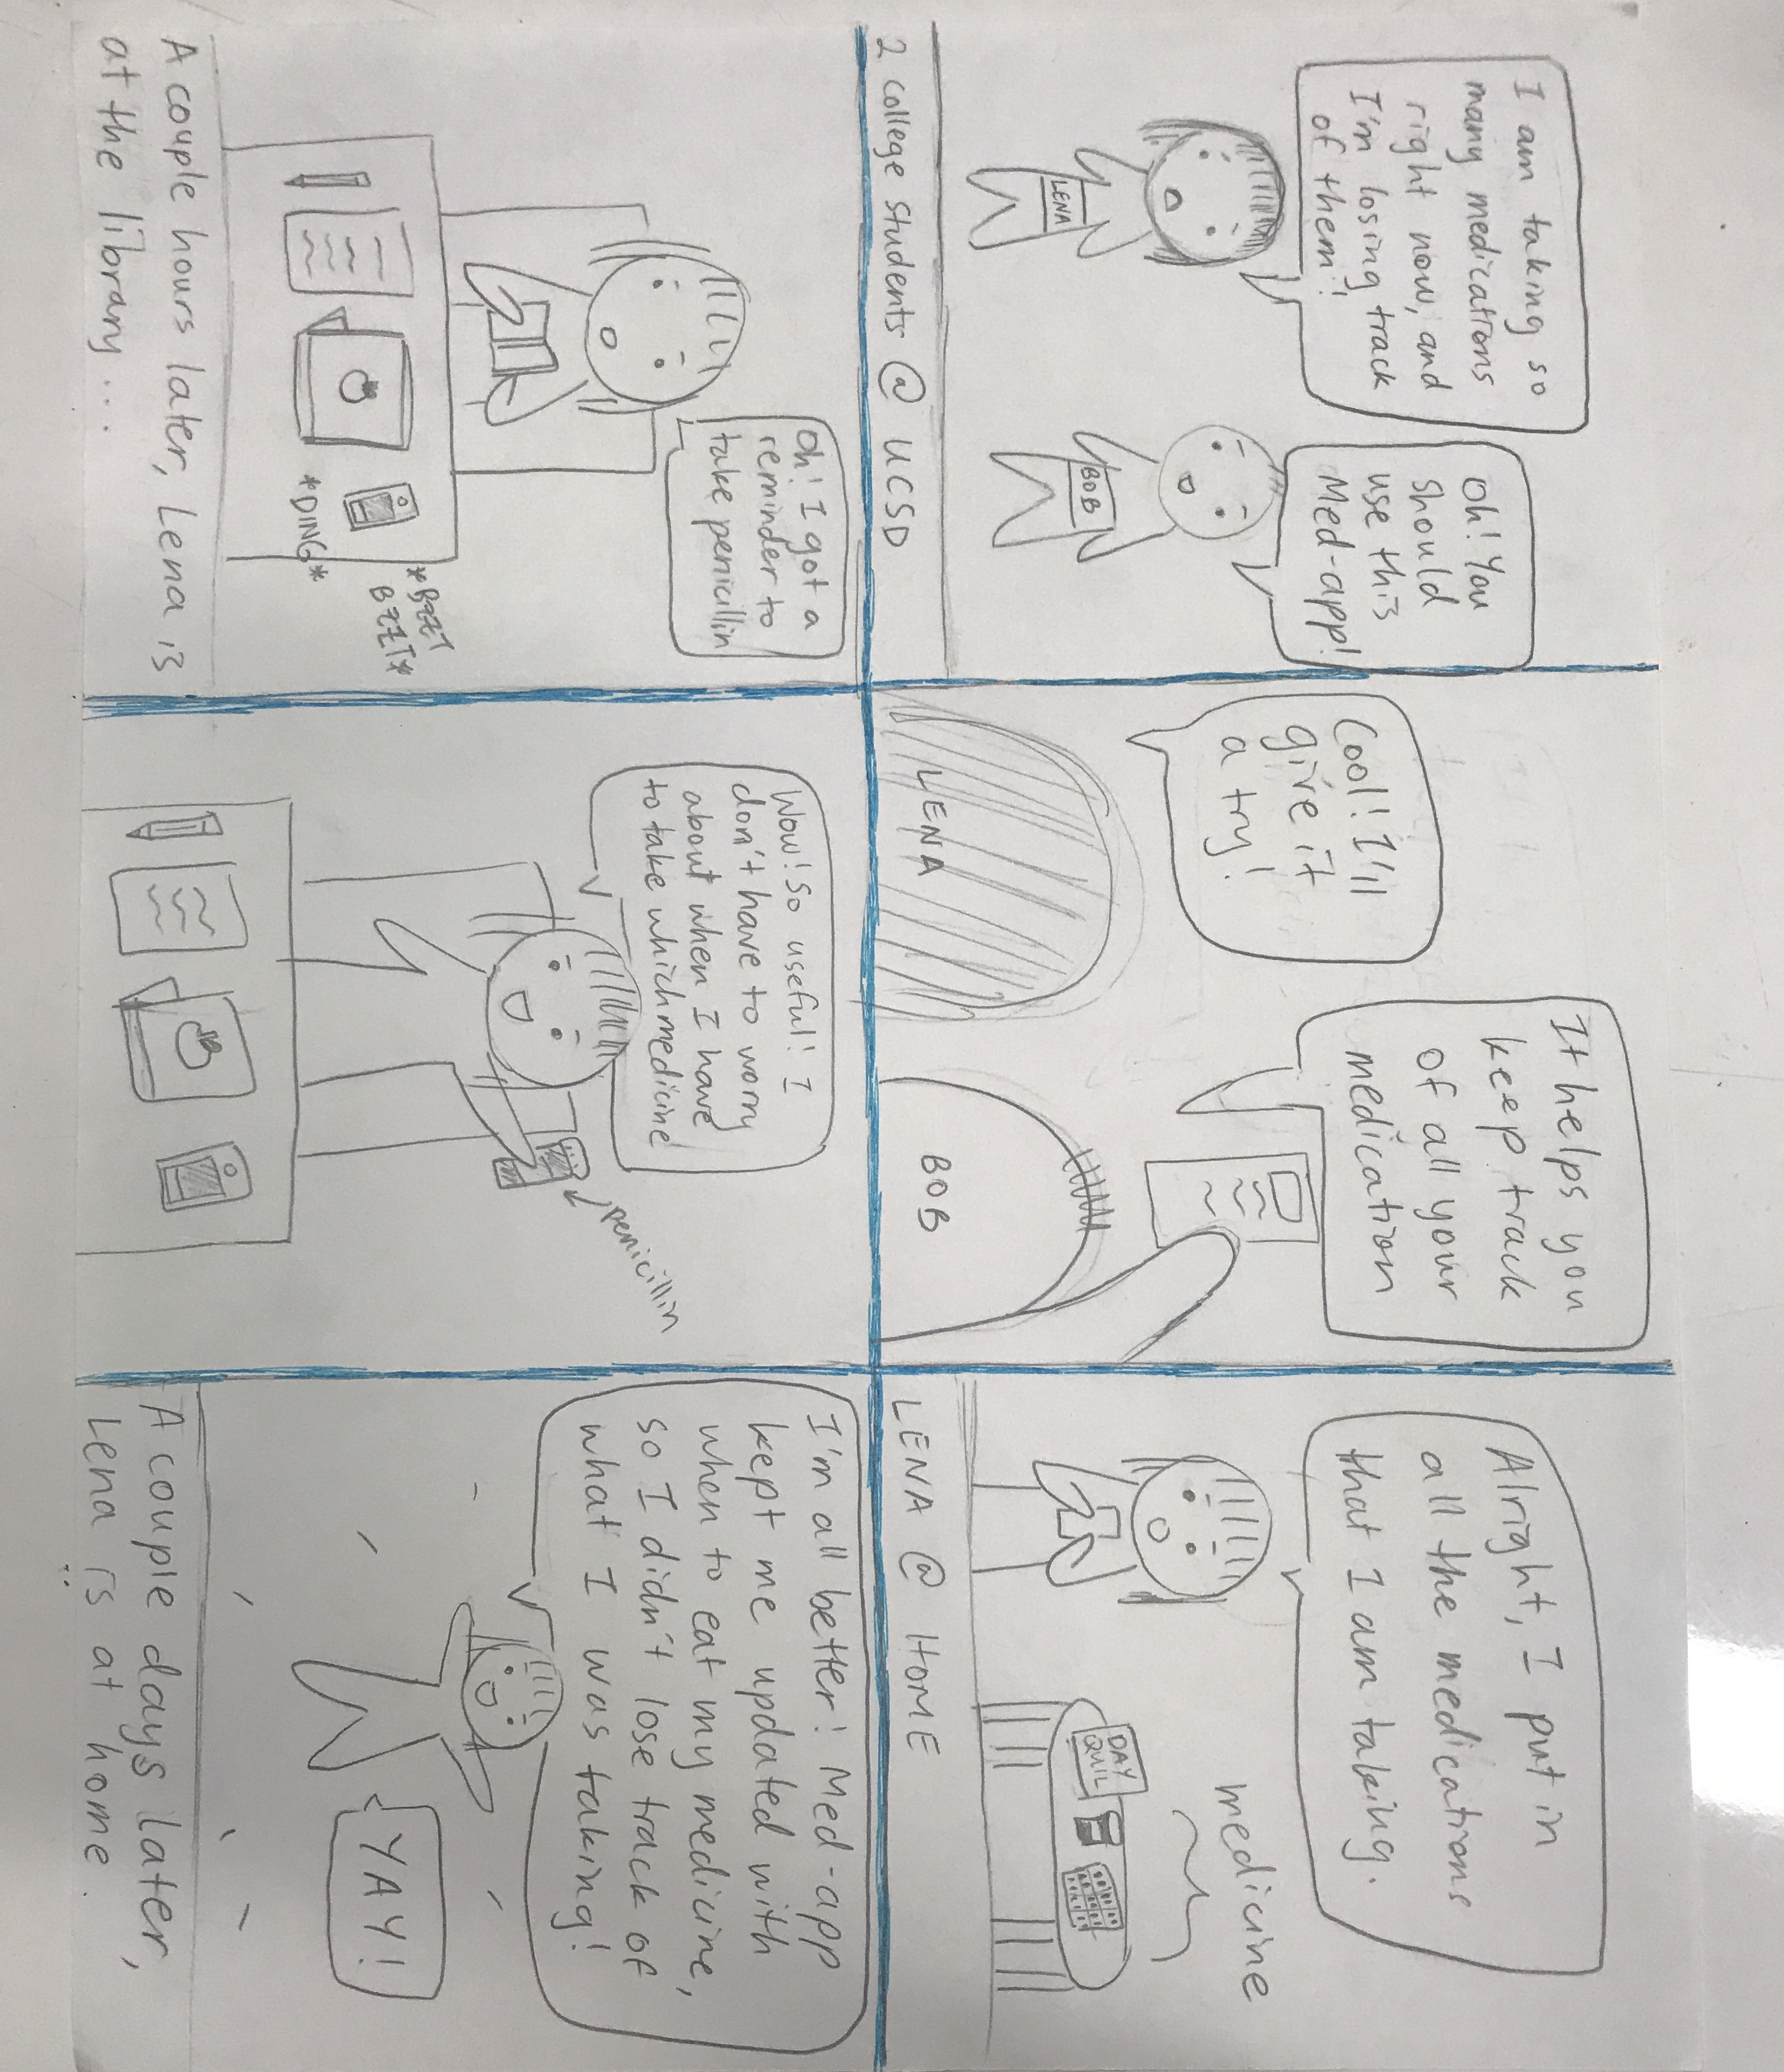 I am taking so
many medications
right now, and
I'm losing track
of them!
Oh! You
should
use this
Med-app!
LENA
BOB
2 college students @ UCSD
It helps you
keep track
of all your
medication
Cool! I'll
give it
a try!
LENA
BOB
Alright, I put in
all the medications
that I am taking.
medicine
DAY
QUIL
LENA @ HOME
Oh! I got a
reminder to
take penicillin
*BZZT
BZZT*
*DING*
A couple hours later, Lena is
at the library...
Wow! So useful! I
don't have to worry
about when I have
to take which medicine
penicillin
I'm all better! Med-app
kept me updated with
when to eat my medicine,
so I didn't lose track of
what I was taking!
YAY!
A couple days later,
Lena is at home.